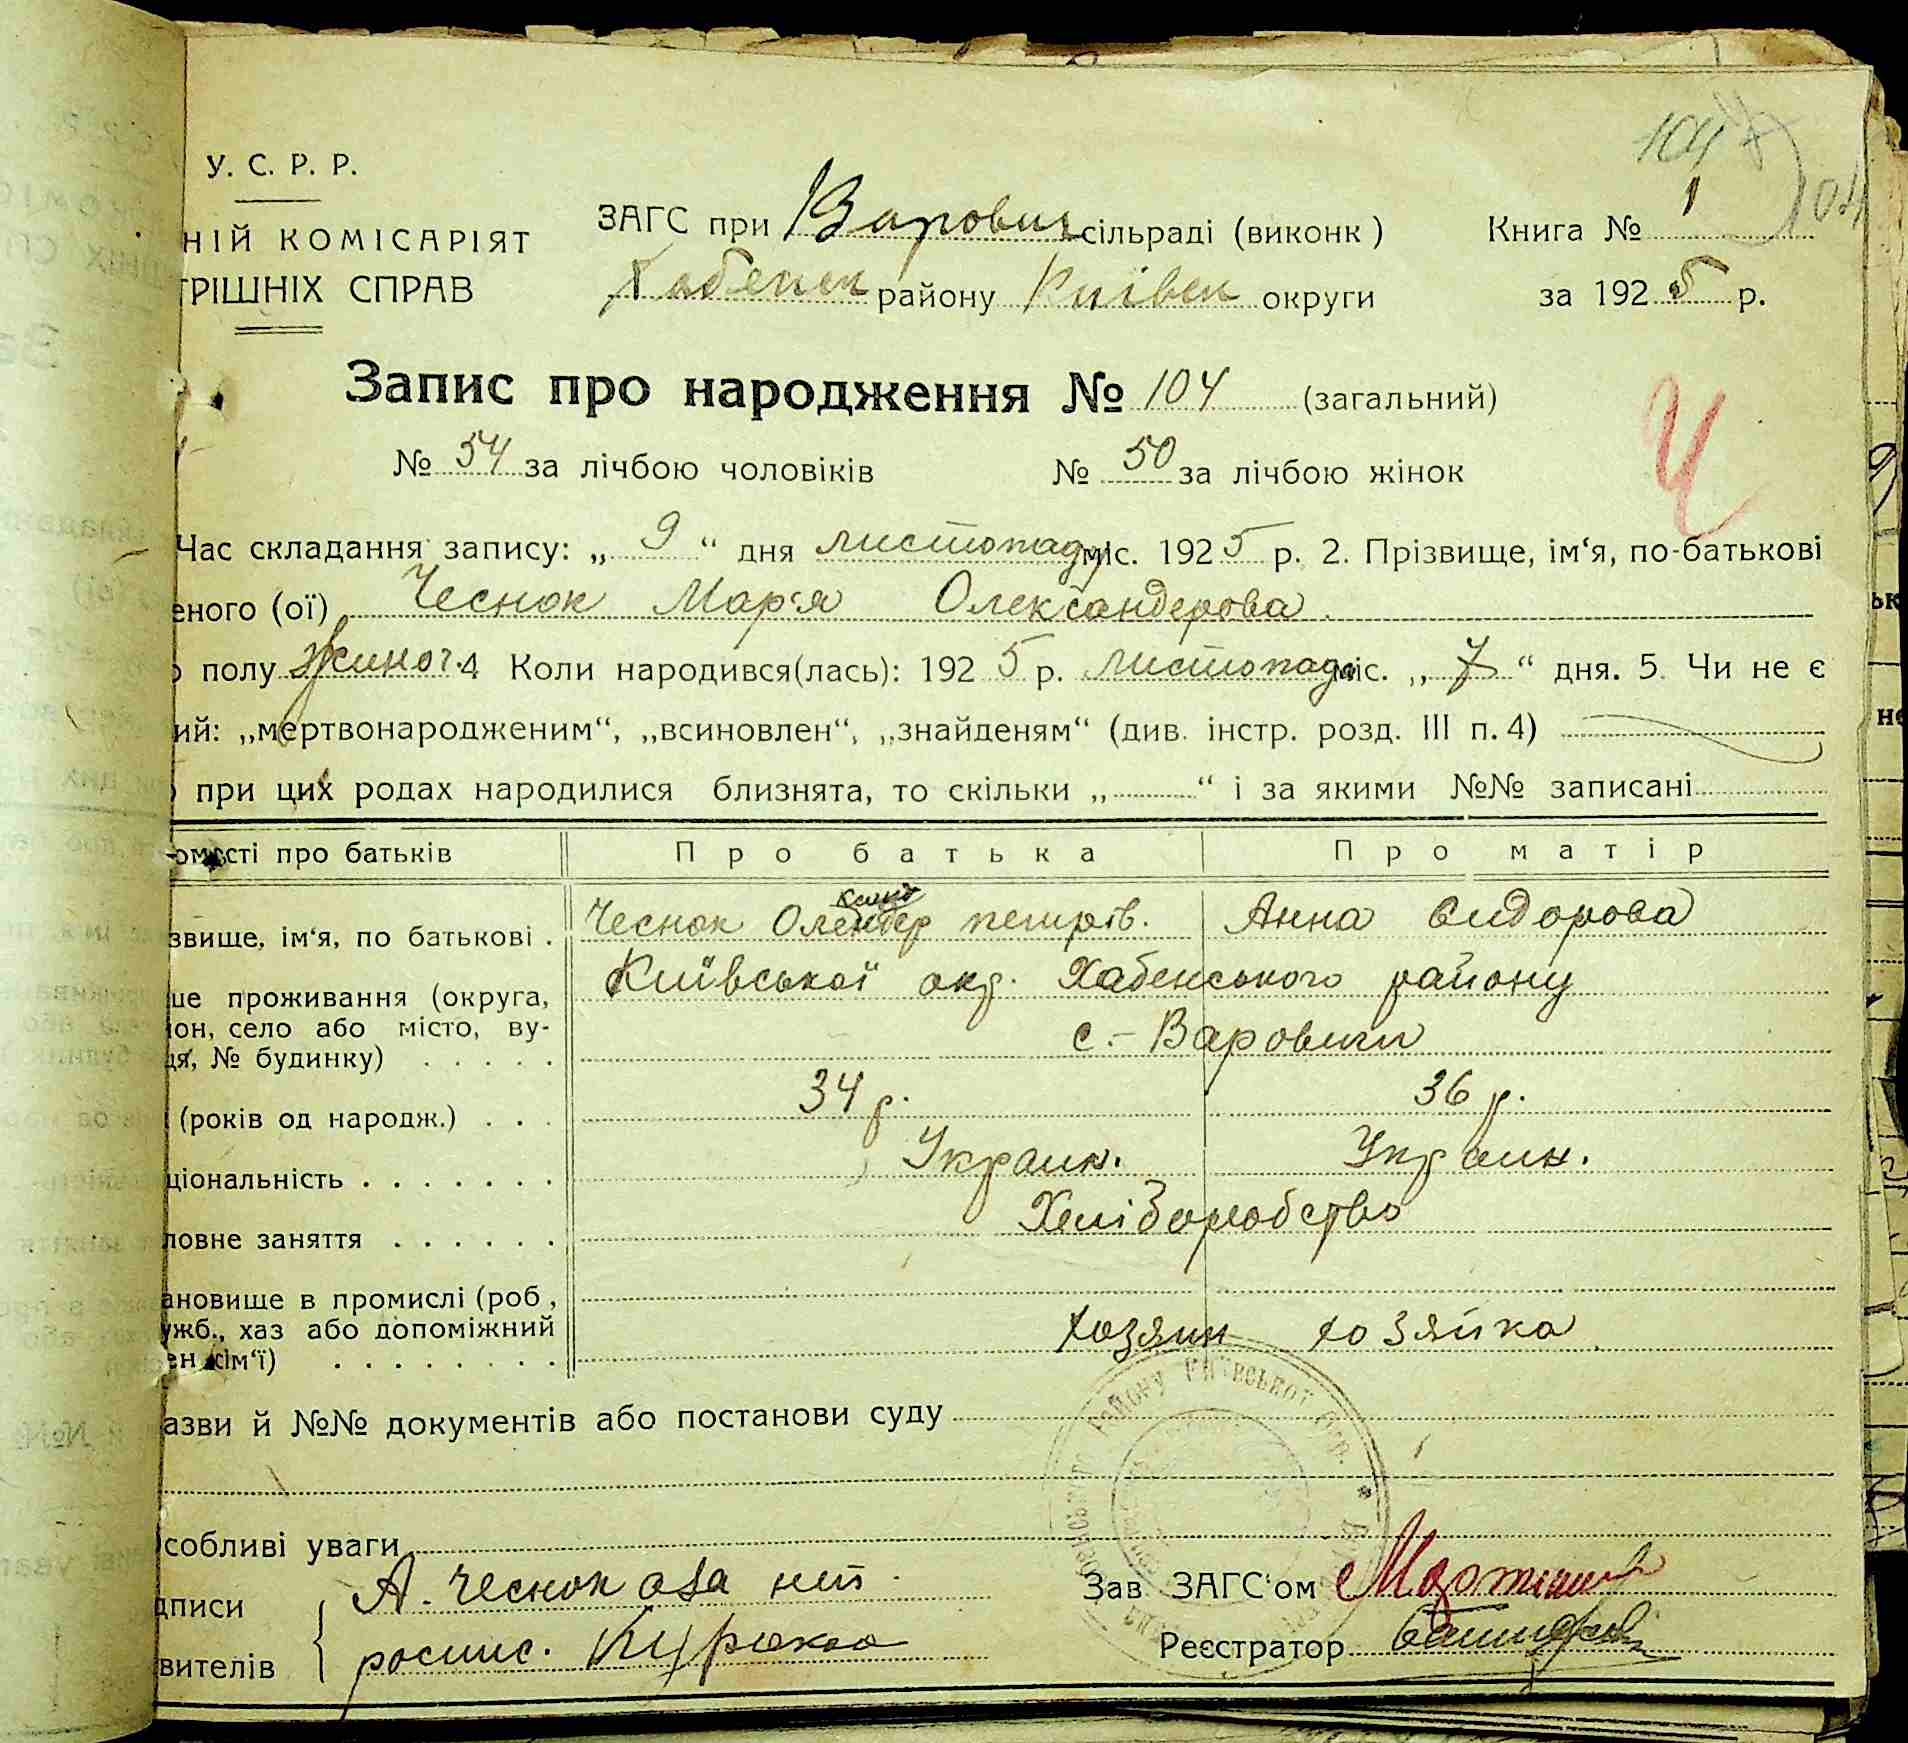 У. С. Р. Р.
НІЙ КОМІСАРІЯТ
ТРІШНІХ СПРАВ
ЗАГС при Варович сільраді (виконк)
Хабенськ району Київськ округи
104
Книга № 1
за 1925 р.
Запис про народження № 104 (загальний)
№ 54 за лічбою чоловіків № 50 за лічбою жінок
Ч
Час складання запису: „ 9 “ дня листопаду міс. 1925 р. 2. Прізвище, ім‘я, по-батькові
еного (ої) Чеснок Мар‘я Олександерова.
полу жиноч. 4 Коли народився(лась): 1925 р. листопада міс. „ 7 “ дня. 5. Чи не є
ий: „мертвонародженим“, „всиновлен“, „знайденям“ (див. інстр. розд. III п. 4)
при цих родах народилися близнята, то скільки „ “ і за якими №№ записані
омості про батьків Про батька Про матір
звище, ім‘я, по батькові . Чеснок Олександер петров. Анна Сидорова
ще проживання (округа, Київської окр. Хабенського району
он, село або місто, ву-
ця, № будинку) . . . . . с.- Варовичи
(років од народж.) . . . 34 р. 36 р.
ціональність . . . . . . . Украин. Украин.
ловне заняття . . . . . . Хеліборобство
ановище в промислі (роб,
ужб., хаз або допоміжний хозяин хозяйка
ен сім‘ї) . . . . . . . .
азви й №№ документів або постанови суду
Району Київської Окр.
собливі уваги
дписи А. Чеснок аза неп.
вителів роспис.
Зав ЗАГС‘ом
Реєстратор